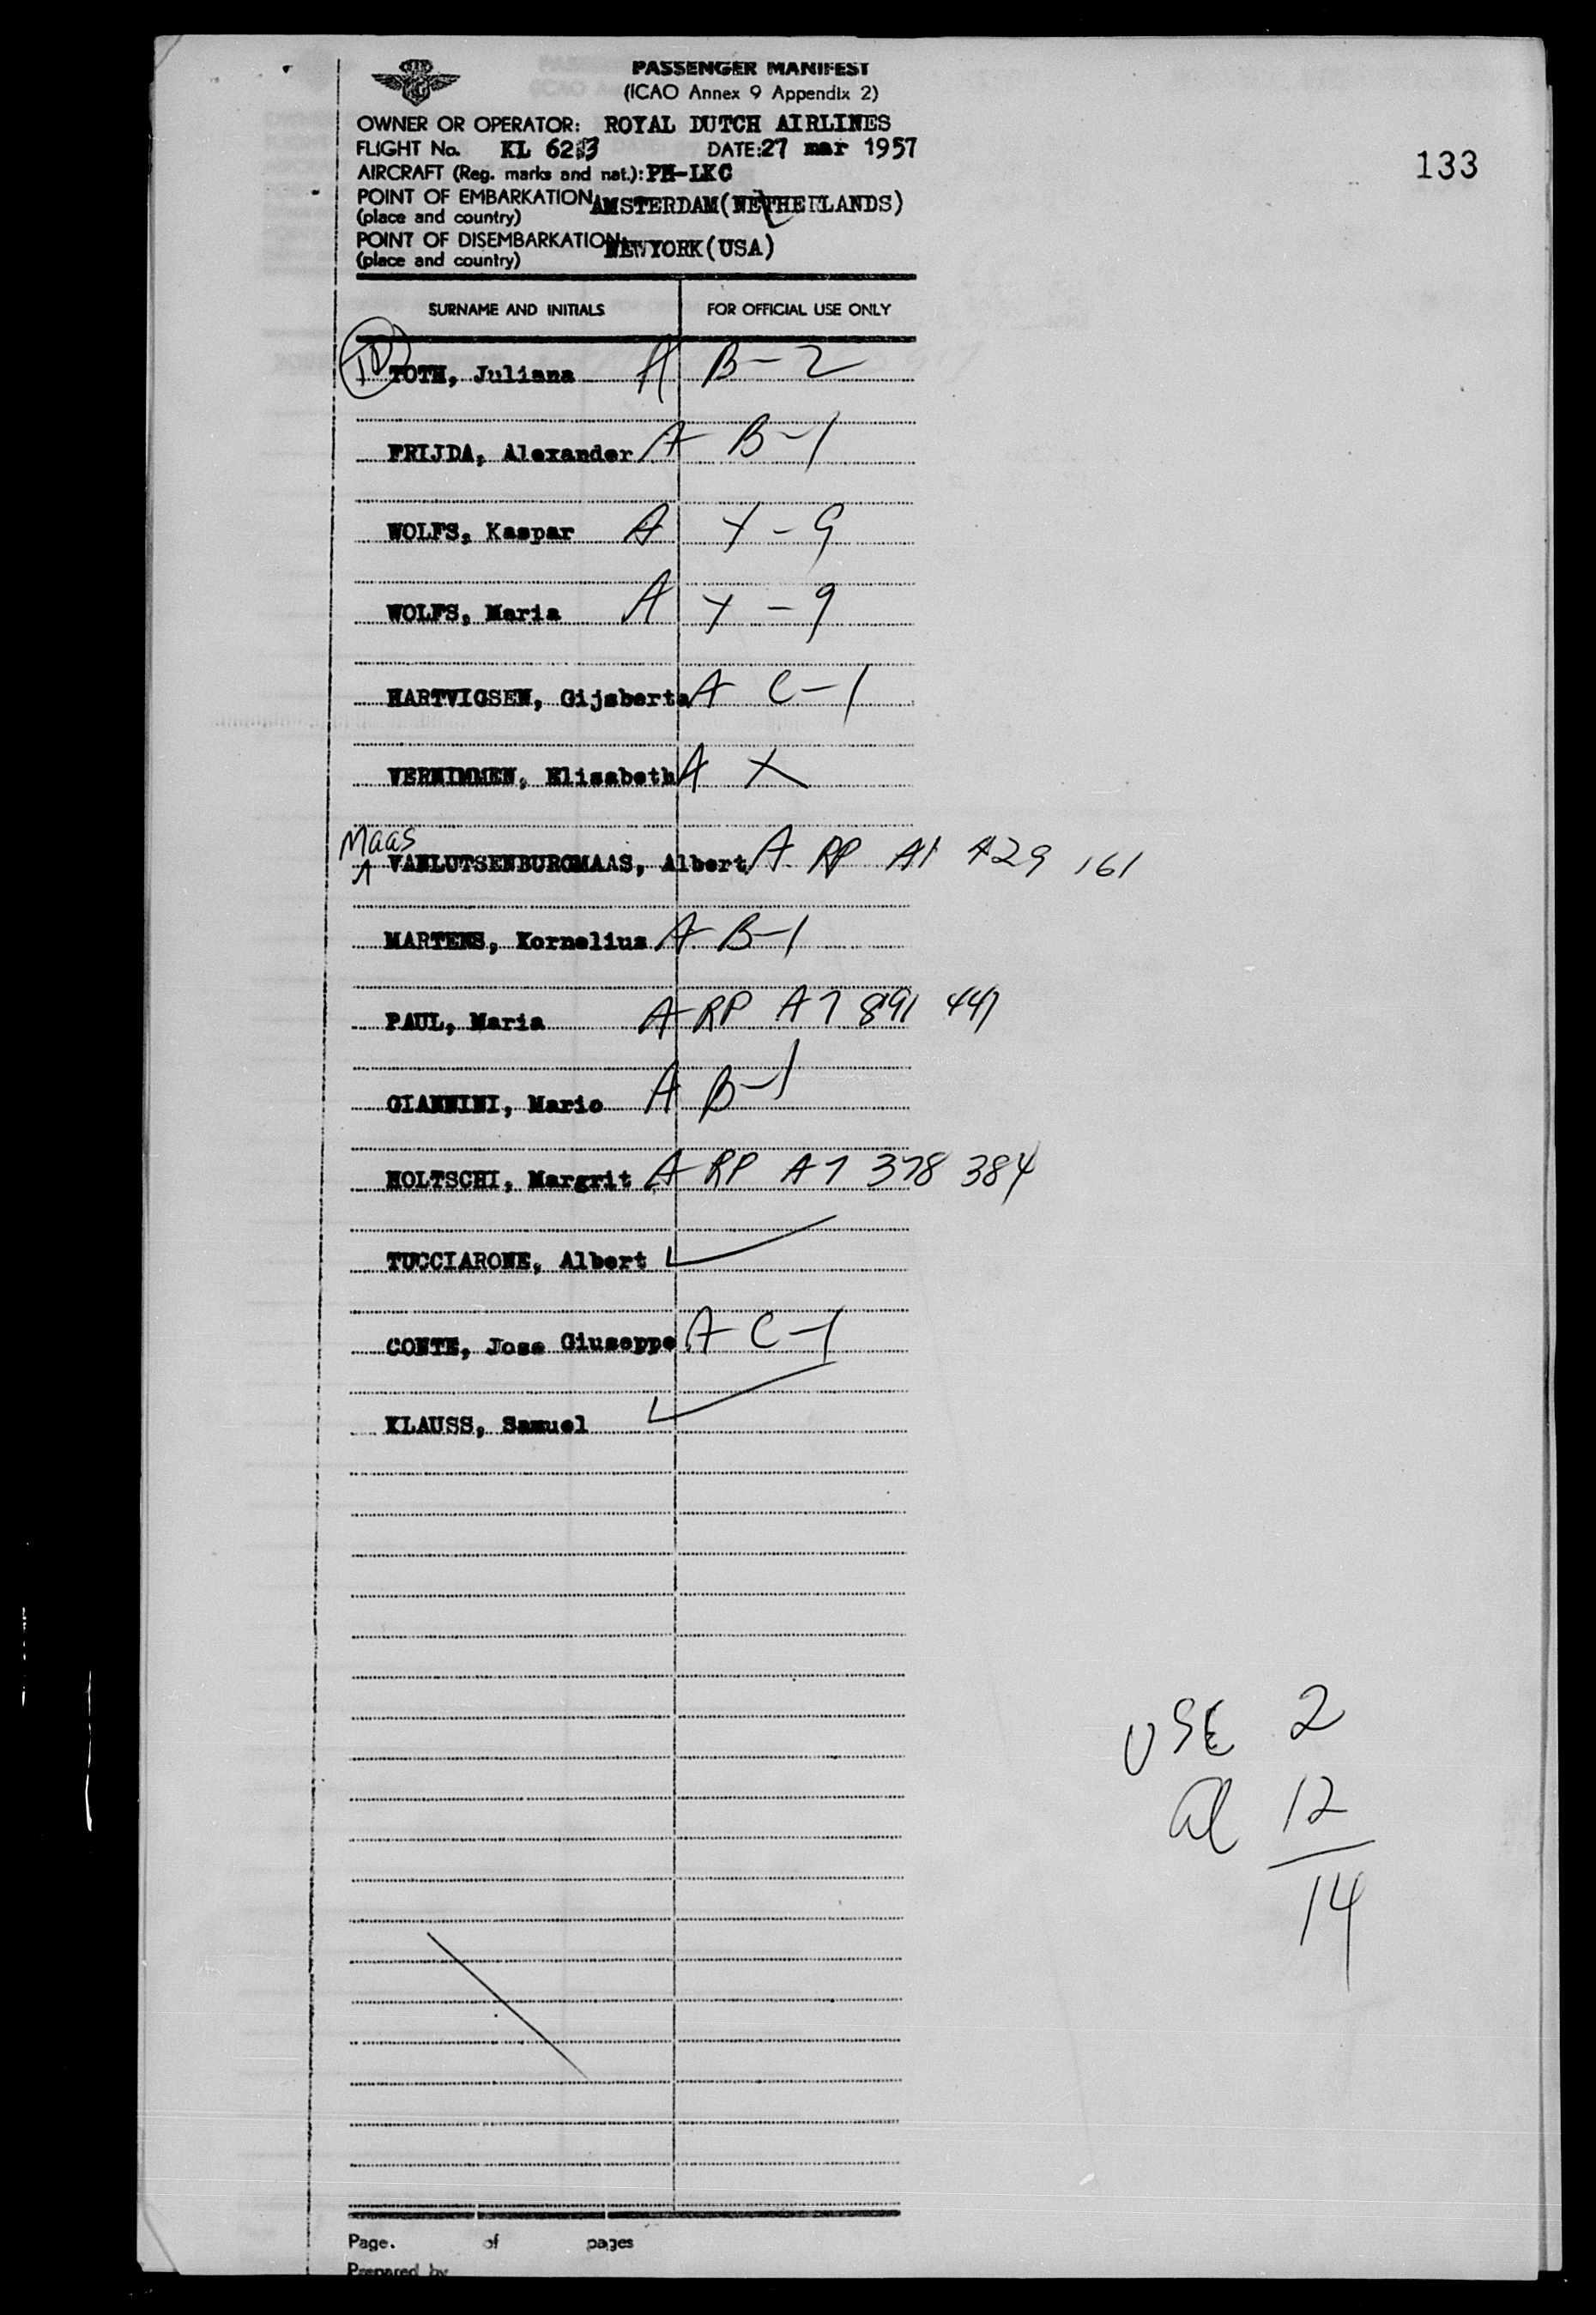 PASSENGER MANIFEST
(ICAO Annex 9 Appendix 2)
133
OWNER OR OPERATOR: ROYAL DUTCH AIRLINES
FLIGHT No. KL 6233 DATE: 27 mar 1957
AIRCRAFT (Reg. marks and nat.): PH-LKC
POINT OF EMBARKATION AMSTERDAM(NETHERLANDS)
(place and country)
POINT OF DISEMBARKATION NEWYORK(USA)
(place and country)
SURNAME AND INITIALS FOR OFFICIAL USE ONLY
TOTH, Juliana A B-2
FRIJDA, Alexander A B-1
WOLFS, Kaspar A X-9
WOLFS, Maria A X-9
HARTVIGSEN, Gijsberta A C-1
VERNIMMEN, Elisabeth A X
Maas
VANLUTSENBURGMAAS, Albert A RP A1 429 161
MARTENS, Kornelius A B-1
PAUL, Maria A RP A7 891 447
GIANNINI, Mario A B-1
HOLTSCHI, Margrit A RP A7 378 384
TUCCIARONE, Albert
CONTE, Jose Giuseppe A C-1
KLAUSS, Samuel
USE 2
al 12
14
Page. of pages
Prepared by